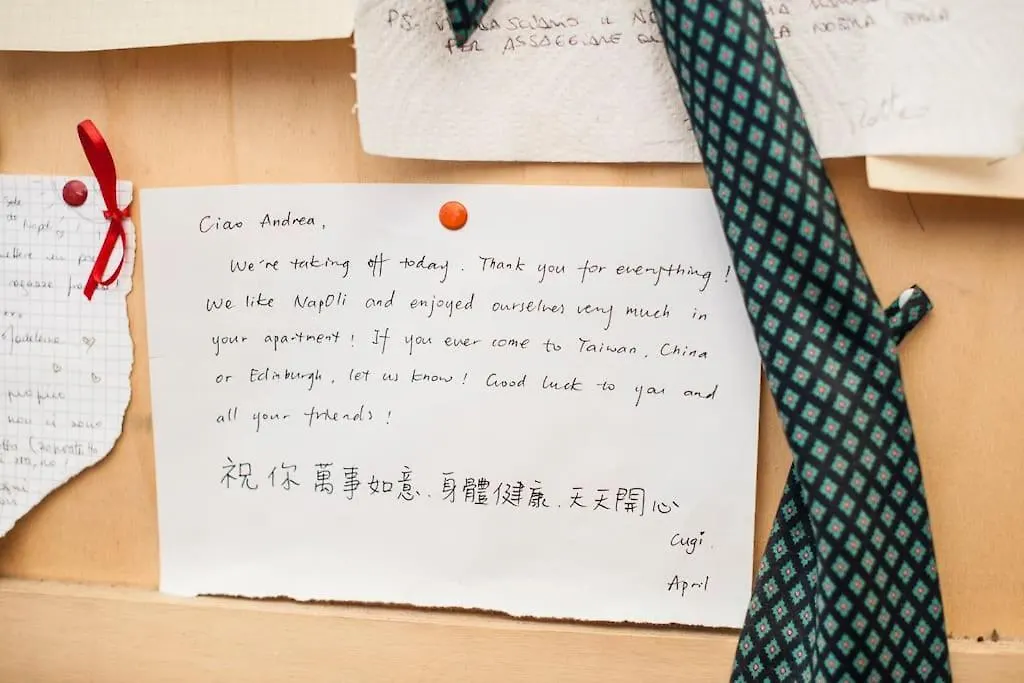 PS.
PER ASSAGGIARE
LA NOSTRA
Ciao Andrea,
We're taking off today. Thank you for everything!
We like NapOli and enjoyed ourselves very much in
your apartment! If you ever come to Taiwan, China
or Edinburgh, let us know! Good luck to you and
all your friends!
祝你萬事如意、身體健康、天天開心
Cugi.
April
Madeleine